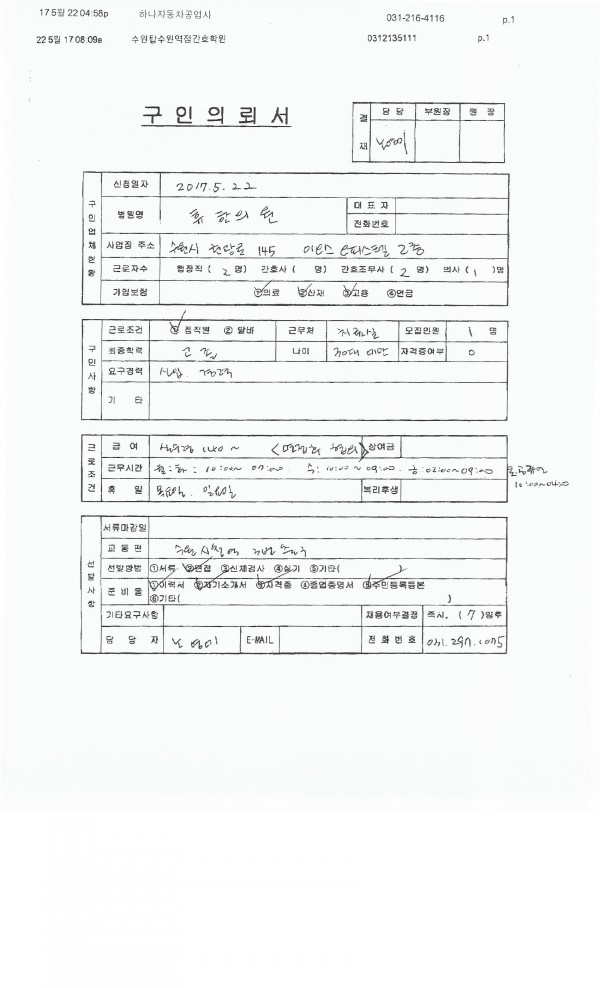 17 5월 22 04:58p 하나자동차공업사 031-216-4116 p.1
22 5월 17 08:09a 수원탑수원역점간호학원 0312135111 p.1
구 인 의 뢰 서
결재 담 당 부원장 원 장
구인업체현황
신청일자 2017. 5. 22
병원명 휴 한의원 대 표 자
전화번호
사업장 주소 수원시 권광로 145 2층
근로자수 행정직 ( 2 명) 간호사 ( 명) 간호조무사 ( 2 명) 의사 ( 1 )명
가입보험 ①의료 ②산재 ③고용 ④연금
구인사항
근로조건 ① 정직원 ② 알바 근무처 모집인원 1 명
최종학력 고졸 나이 30대 미만 자격증여부 0
요구경력 신입, 경력
기 타
근로조건
급 여 140 ~ 상여금
근무시간 월:화: 10:00~ 07:00. 수: 10:00~09:00. 금:02:00~09:00
10:00~04:00
휴 일 목요일, 일요일 복리후생
선발사항
서류마감일
교 통 편 수원시청역
선발방법 ①서류 ②면접 ③신체검사 ④실기 ⑤기타( )
준 비 물 ①이력서 ②자기소개서 ③자격증 ④졸업증명서 ⑤주민등록등본
⑥기타( )
기타요구사항 채용여부결정 즉시, ( 7 )일후
담 당 자 노영미 E-MAIL 전 화 번 호 031. 297. 1075